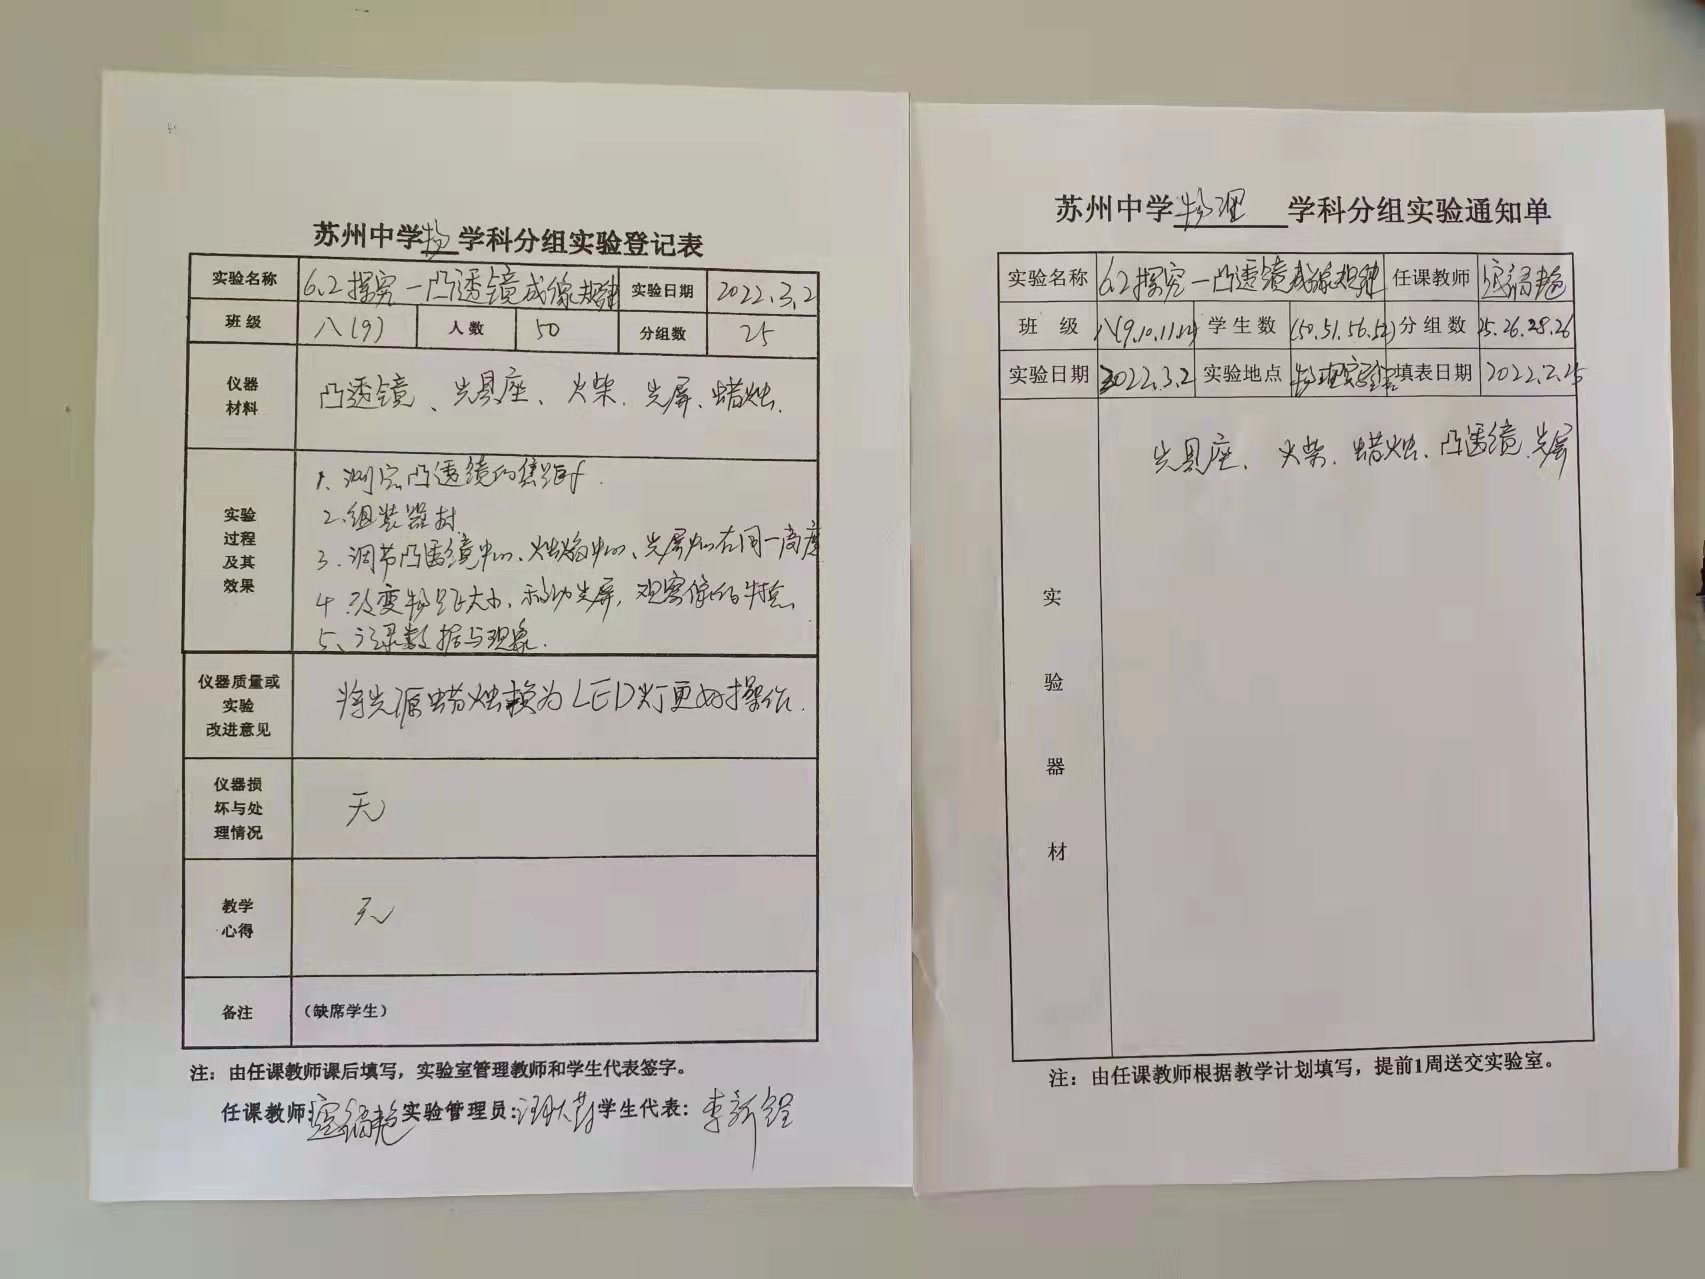 苏州中学物学科分组实验登记表
实验名称 6.2探究一凸透镜成像规律 实验日期 2022.3.2
班级 八(9) 人数 50 分组数 25
仪器
材料
凸透镜、光具座、火柴、光屏、蜡烛.
实验
过程
及其
效果
1. 测定凸透镜的焦距f.
2.组装器材
3.调节凸透镜中心、烛焰中心、光屏中心在同一高度
4.改变物距大小,移动光屏,观察像的特点.
5、记录数据与现象.
仪器质量或
实验
改进意见
将光源蜡烛换为LED灯更好操作.
仪器损
坏与处
理情况
无
教学
心得
无
备注 (缺席学生)
注:由任课教师课后填写,实验室管理教师和学生代表签字。
任课教师: 实验管理员: 学生代表:
苏州中学物理 学科分组实验通知单
实验名称 6.2探究一凸透镜成像规律 任课教师
班 级 八(9.10.11.12) 学生数 (50.51.56.52) 分组数 25.26.28.26
实验日期 2022.3.2 实验地点 物理实验室 填表日期 2022.2.25
实
验
器
材
光具座、火柴、蜡烛、凸透镜、光屏
注:由任课教师根据教学计划填写,提前1周送交实验室。